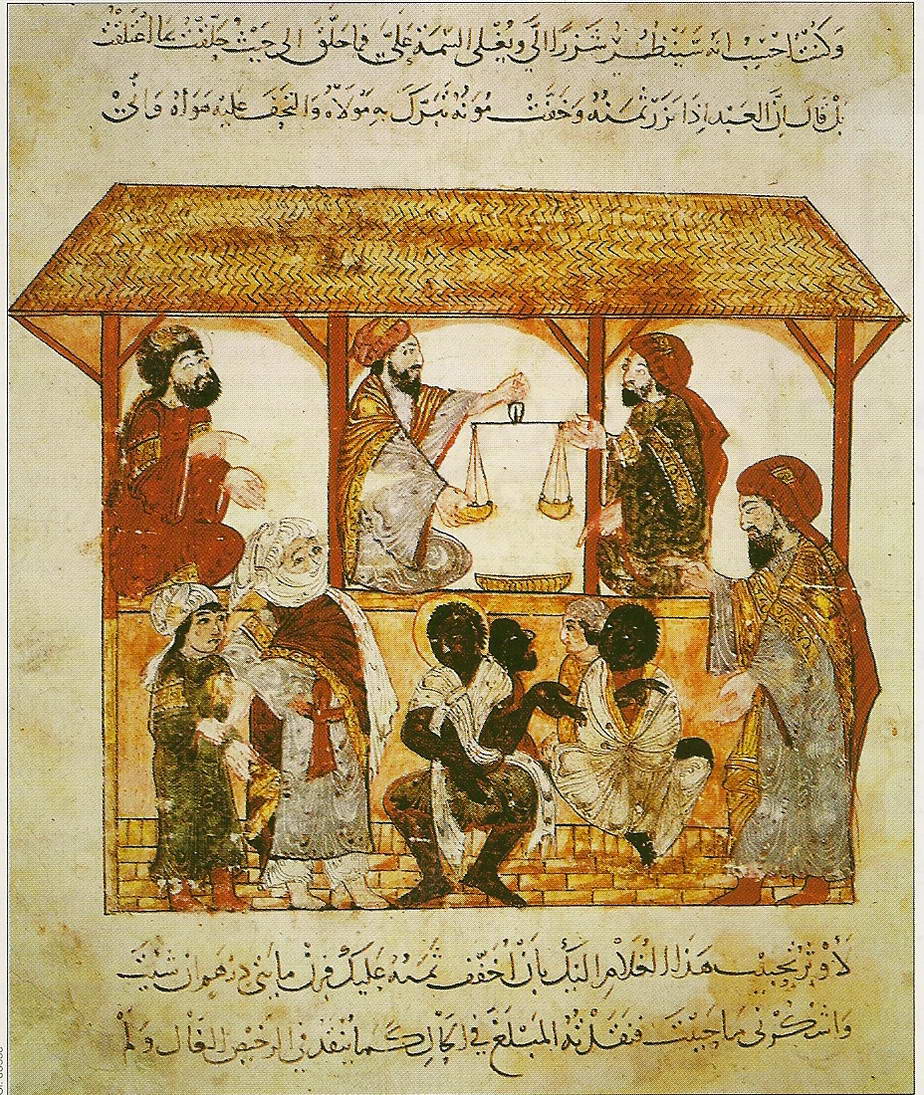 وَكُنْتُ احْسِبُ انَّهُ سَيَنْظُرُ شَزَرًا الَيَّ وَيُغْلِى السِّمَةَ عَلَيَّ فَمَا حَلَّقَ الى حَيْثُ حَلَّقْتُ بما اعْتَلَقْتُ
بَلْ قالَ انَّ العَبْدَ اذَا نَزَرَ ثَمَنُهُ وَخَفَّتْ مُوَنُهُ تَبَرَّكَ بِهِ مَوْلَاهُ وَالْتَحَفَ عَلَيْهِ هَوَاهُ وَانِّيْ
لَأُوْثِرُ تَحْبِيْبَ هَذَا الغُلَامِ الَيْكَ بِانْ اُخَفِّفَ ثَمَنُهُ عَلَيْكَ فَزِنْ مايتى دِرْهَمٍ اِنْ شِيْتَ
وَاشْكُرْ لى مَا حَيِيْتَ فَنَقَدْتُهُ المَبْلَغَ فى الحَالِ كَمَا يُنْقَدُ فى الرَّخِيْصِ الغَالِ وَلَمْ